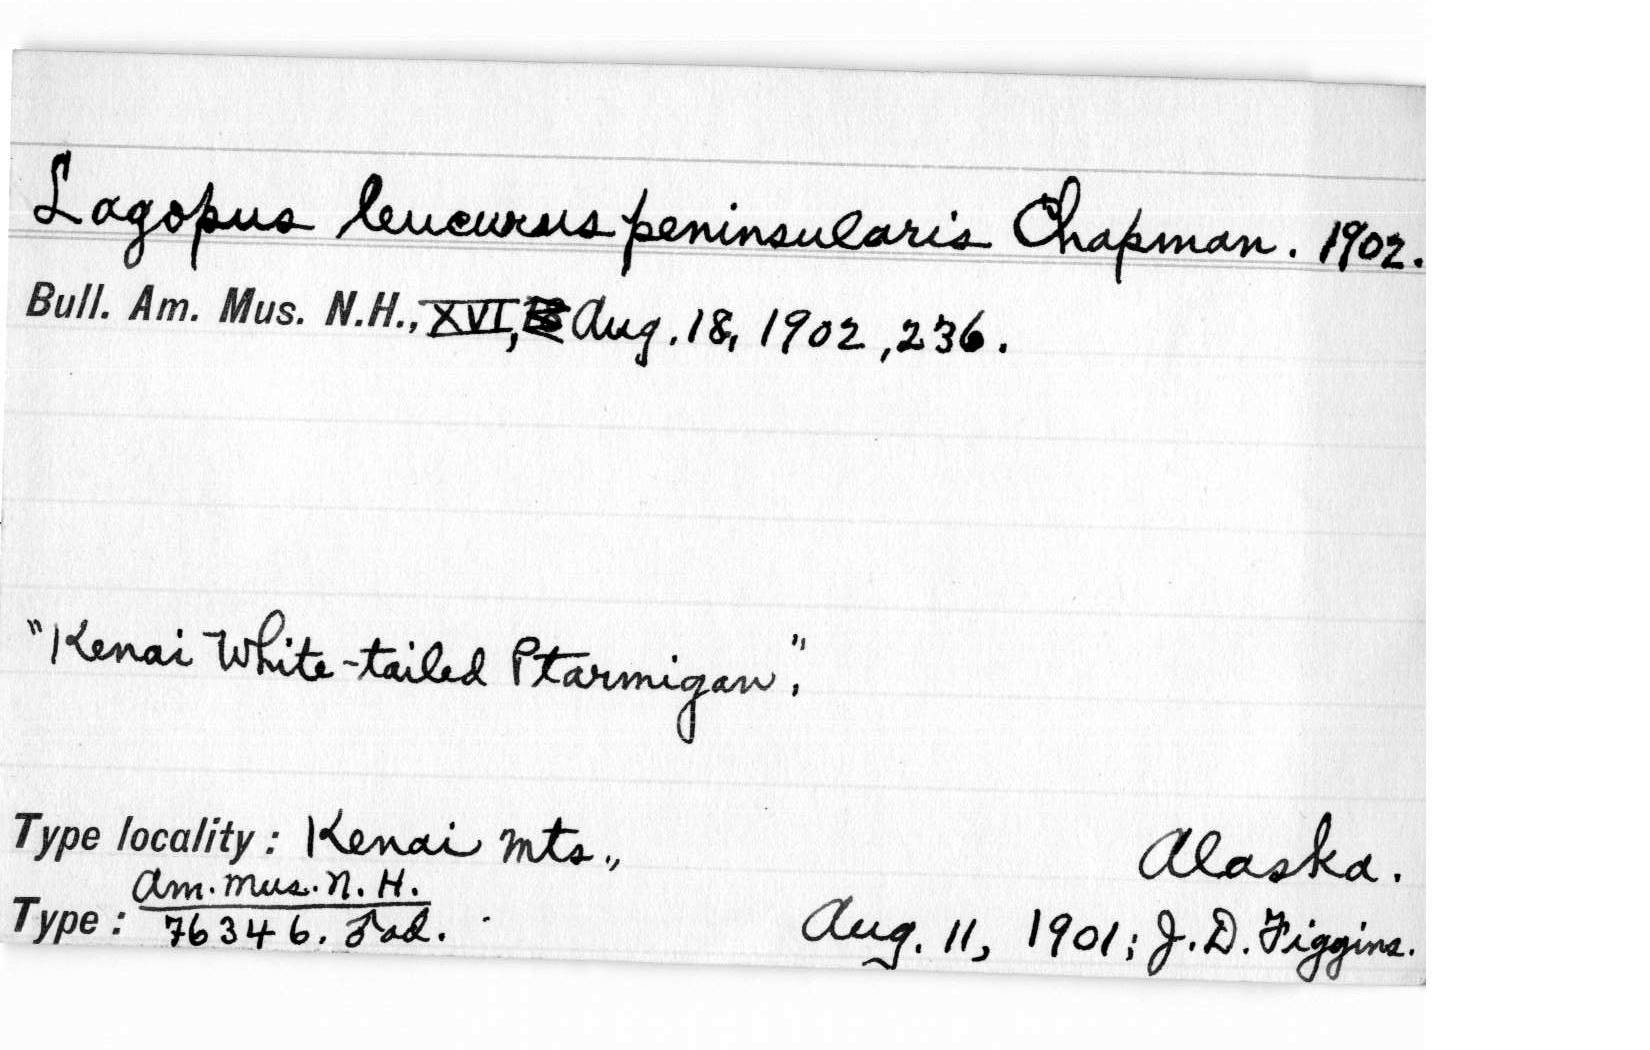 Lagopus leucurus peninsularis Chapman. 1902.
Bull. Am. Mus. N.H., XVI, Aug. 18, 1902, 236.
"Kenai White-tailed Ptarmigan".
Type locality: Kenai Mts., Alaska.
Am. Mus. N. H.
Type: 76346. Aug. 11, 1901; J. D. Figgins.